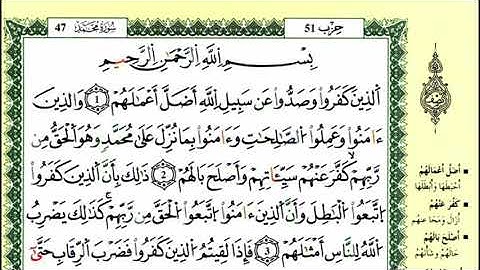 حِزْب 51
سُورَةُ مُحَمَّد 47
بِسْمِ اللَّهِ الرَّحْمَٰنِ الرَّحِيمِ
الَّذِينَ كَفَرُوا وَصَدُّوا عَن سَبِيلِ اللَّهِ أَضَلَّ أَعْمَالَهُمْ ١ وَالَّذِينَ
ءَامَنُوا وَعَمِلُوا الصَّالِحَاتِ وَءَامَنُوا بِمَا نُزِّلَ عَلَىٰ مُحَمَّدٍ وَهُوَ الْحَقُّ مِن
رَّبِّهِمْ كَفَّرَ عَنْهُمْ سَيِّئَاتِهِمْ وَأَصْلَحَ بَالَهُمْ ٢ ذَٰلِكَ بِأَنَّ الَّذِينَ كَفَرُوا
اتَّبَعُوا الْبَاطِلَ وَأَنَّ الَّذِينَ ءَامَنُوا اتَّبَعُوا الْحَقَّ مِن رَّبِّهِمْ كَذَٰلِكَ يَضْرِبُ
اللَّهُ لِلنَّاسِ أَمْثَالَهُمْ ٣ فَإِذَا لَقِيتُمُ الَّذِينَ كَفَرُوا فَضَرْبَ الرِّقَابِ حَتَّىٰ
أَضَلَّ أَعْمَالَهُمْ
أَحْبَطَهَا وَأَبْطَلَهَا
كَفَّرَ عَنْهُمْ
أَزَالَ وَمَحَا عَنْهُمْ
أَصْلَحَ بَالَهُمْ
حَالَهُمْ وَشَأْنَهُمْ